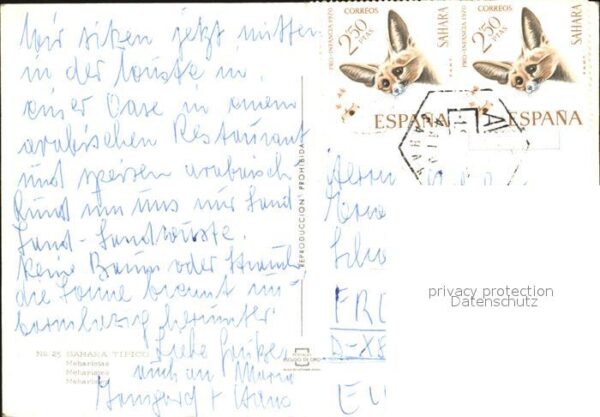 Wir sitzen jetzt mitten
in der Wüste in
einer Oase in einem
arabischen Restaurant
und speisen arabisch
Rund um uns nur Sand
Sand - Sandwüste.
Keine Baum oder Strauch
die Sonne brennt un-
barmherzig herunter.
Liebe Grüße
auch an Maria
Irmgard + Hans
No. 25 SAHARA TIPICO
Meharistas
Meharistes
REPRODUCCION PROHIBIDA
ESCUDO DE ORO
PRO-INFANCIA 1970
CORREOS
2'50
PTAS
SAHARA
ESPAÑA
PRO-INFANCIA 1970
CORREOS
2'50
PTAS
SAHARA
ESPAÑA
Herrn
privacy protection
Datenschutz